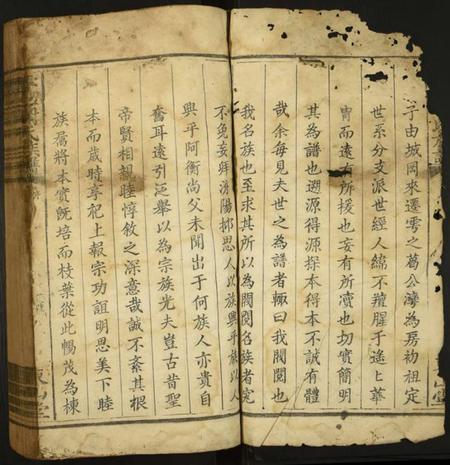 子由城岡來遷雩之葛公灣為房初祖定
世系分支派世經人緯不羶腥于遙遙華
胄而遠有所援也妄有所瀆也切實簡明
其為譜也遡源得源探本得本不誠有體
哉余每見夫世之為譜者輙曰我閥閱也
我名族也至求其所以為閥閱名族者究
不免妄舜汾陽鄙思人以族興乎族以人
興乎阿衡尚父未聞出于何族人亦貴自
奮耳遠引泛舉以為宗族光夫豈古昔聖
帝賢相親睦惇敘之深意哉誠不紊其根
本而歲時享祀上報宗功誼明思美下睦
族屬將本實既培而枝葉從此暢茂為棟